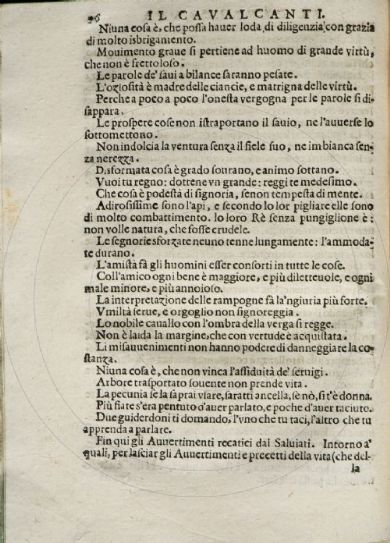 96 IL CAVALCANTI.
Niuna cosa è, che possa hauer loda, di diligenzia con grazia
di molto isbrigamento.
Mouimento graue si pertiene ad huomo di grande virtù,
che non è frettoloso.
Le parole de' saui a bilance saranno pesate.
L'oziosità è madre delle ciancie, e matrigna delle virtù.
Perche a poco a poco l'onesta vergogna per le parole si di-
sappara.
Le prospere cose non istraportano il sauio, ne l'auuerse lo
sottomettono.
Non indolcia la ventura senza il fiele suo, ne imbianca sen-
za nerezza.
Disformata cosa è grado sourano, e animo sottano.
Vuoi tu regno: dottene vn grande: reggi te medesimo.
Che cosa è podestà di signoria, se non tempesta di mente.
Adirosissime sono l'api, e secondo lo lor pigliare elle sono
di molto combattimento. lo loro Rè senza pungiglione è:
non volle natura, che fosse crudele.
Le segnorie sforzate neuno tenne lungamente: l'ammoda-
te durano.
L'amistà fà gli huomini esser consorti in tutte le cose.
Coll'amico ogni bene è maggiore, e più diletteuole, e ogni
male minore, e più annoioso.
La interpretazione delle rampogne fà la'ngiuria più forte.
Vmiltà serue, e orgoglio non signoreggia.
Lo nobile cauallo con l'ombra della verga si regge.
Non è laida la margine, che con vertude è acquistata.
Li misauuenimenti non hanno podere di danneggiare la co-
stanza.
Niuna cosa è, che non vinca l'assiduità de' seruigi.
Arbore trasportato souente non prende vita.
La pecunia se la saprai vsare, saratti ancella, se nò, sit'è donna.
Più fiate s'era pentuto d'auer parlato, e poche d'auer taciuto.
Due guiderdoni ti domando, l'vno che tu taci, l'altro che tu
apprenda a parlare.
Fin qui gli Auuertimenti recatici dal Saluiati. Intorno a'
quali, per lasciar gli Auuertimenti e precetti della vita (che del-
la